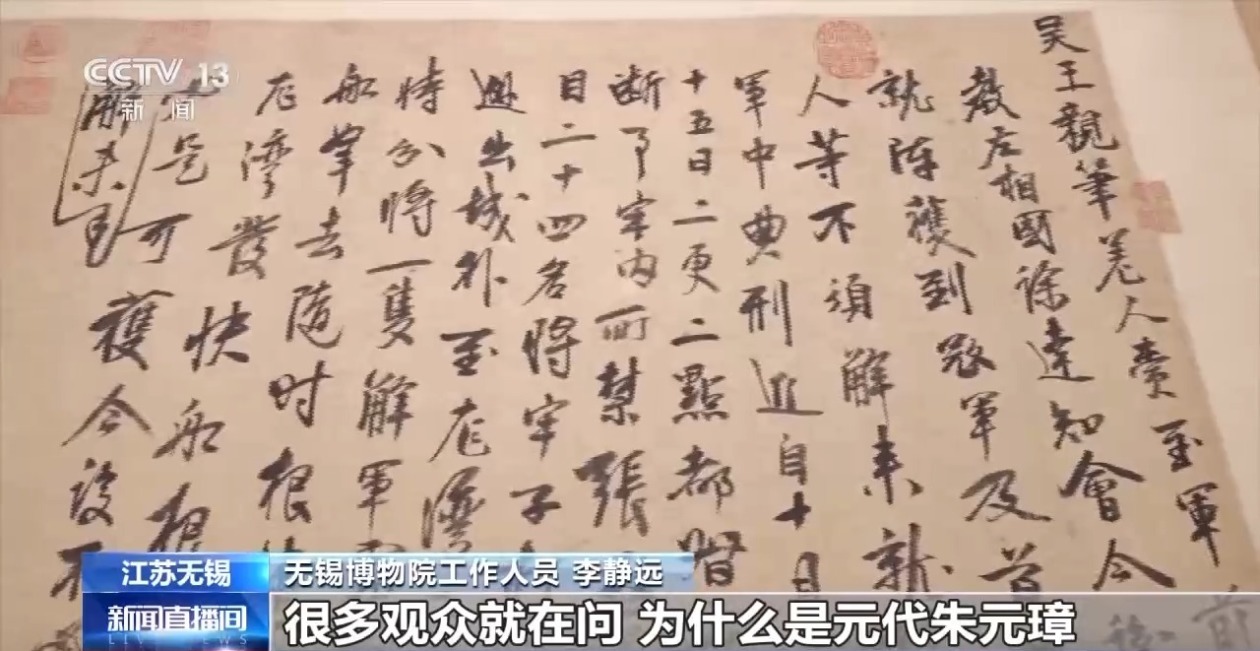 CCTV 13
新闻
吴王親筆差人賫至軍前
教左相國徐達知會今後
就陣獲到寇軍及首
人等不須解来就
軍中典刑進自十月
十五日二更二點都督
断事牢内所禁張
目二十四名將牢子
越出城外至龙灣
將一隻解軍
船牽去隨时根
龙灣發快船根
是可獲今设不
解来
江苏无锡
无锡博物院工作人员 李静远
新闻直播间
LIVE NEWS
很多观众就在问 为什么是元代朱元璋